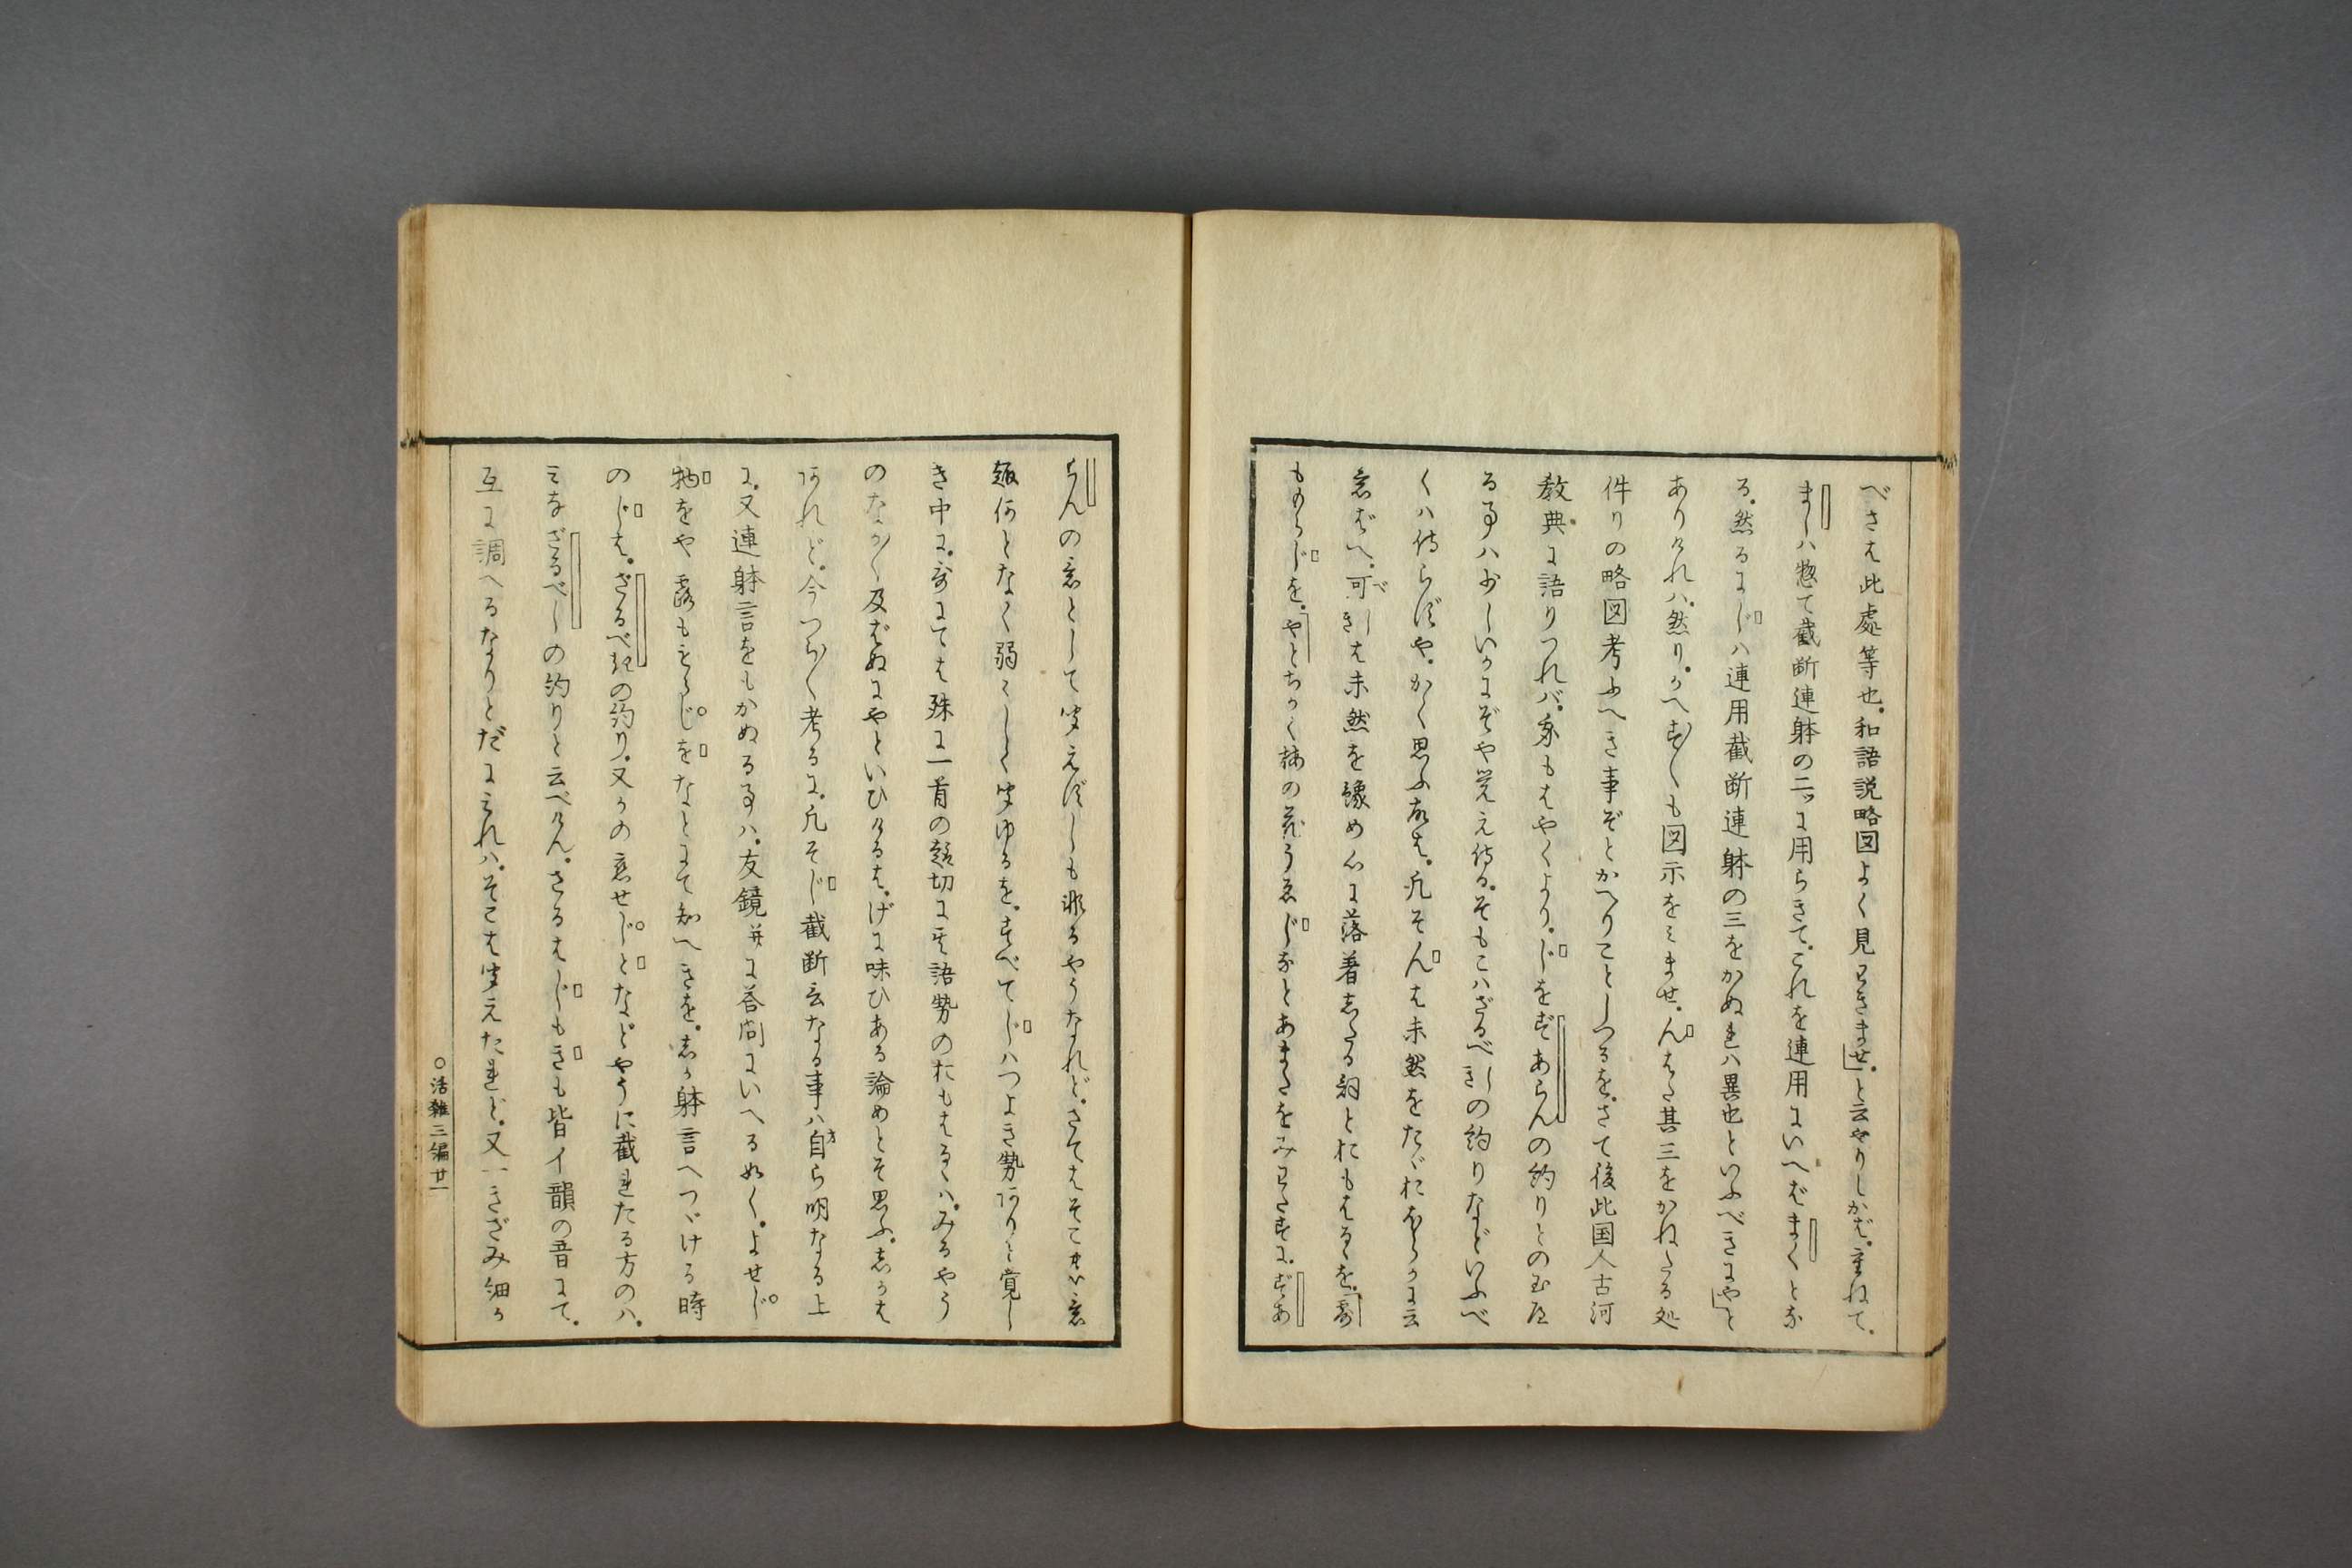 べきは此處等也。和語説略図よく見わきませ」と云やりしかば。重ねて。
ましハ惣て截断連躰の二ツに用らきて。これを連用にいへばまくとな
る。然るにじハ連用截断連躰の三をかぬれハ異也といふべきにや」と
ありけれハ。然り。かへす〴〵も図示をミませ。んはた其三をかねたる処
件りの略図考ふへき事ぞとかへりことしつるを。さて後此国人古河
教典に語りつれバ。余もはやくより。じをずあらんの約りとの
る事ハ少しいかにぞや覚え侍る。そもこハざるべきしの約りなどいふべ
くハ侍らずや。かく思ふ故は。凡そんは未然をたゞに云
意ばへ。可しきは未然を豫め心に落着したる詞とにもはるゝを。
ものらじを。やとちかく梅の花うゑじなとあまたをみわたすに。ずあ
らんの意として聞えずしも非るやうなれど。さてはそこ意
趣何となく弱くしく聞ゆるを。すべてじハつよき勢ありと覚し
き中に。哥にては殊に一首の趣切に其語勢のにもはるゝハ。みるやう
のなか〳〵及ばぬにやといひけるは。げに味ひある論めとそ思ふ。しかは
あれど。今つら〳〵考るに。凡そじ截断言なる事ハ自ら明なる上
に。又連躰言をもかぬる事ハ。友鏡并に答問にいへる如く。よせじ
物をや露もをらじをなとにて知へきを。しか躰言へつゞける時
のじは。ざるべきの約り。又かの意せじとなどやうに截れたる方のハ。
ミなざるべしの約りと云べけん。さるはじもきも皆イ韻の音にて。
互に調へるなりとだにみれハ。そこは聞えたれど。又一きざみ細か
○活雜三編廿一